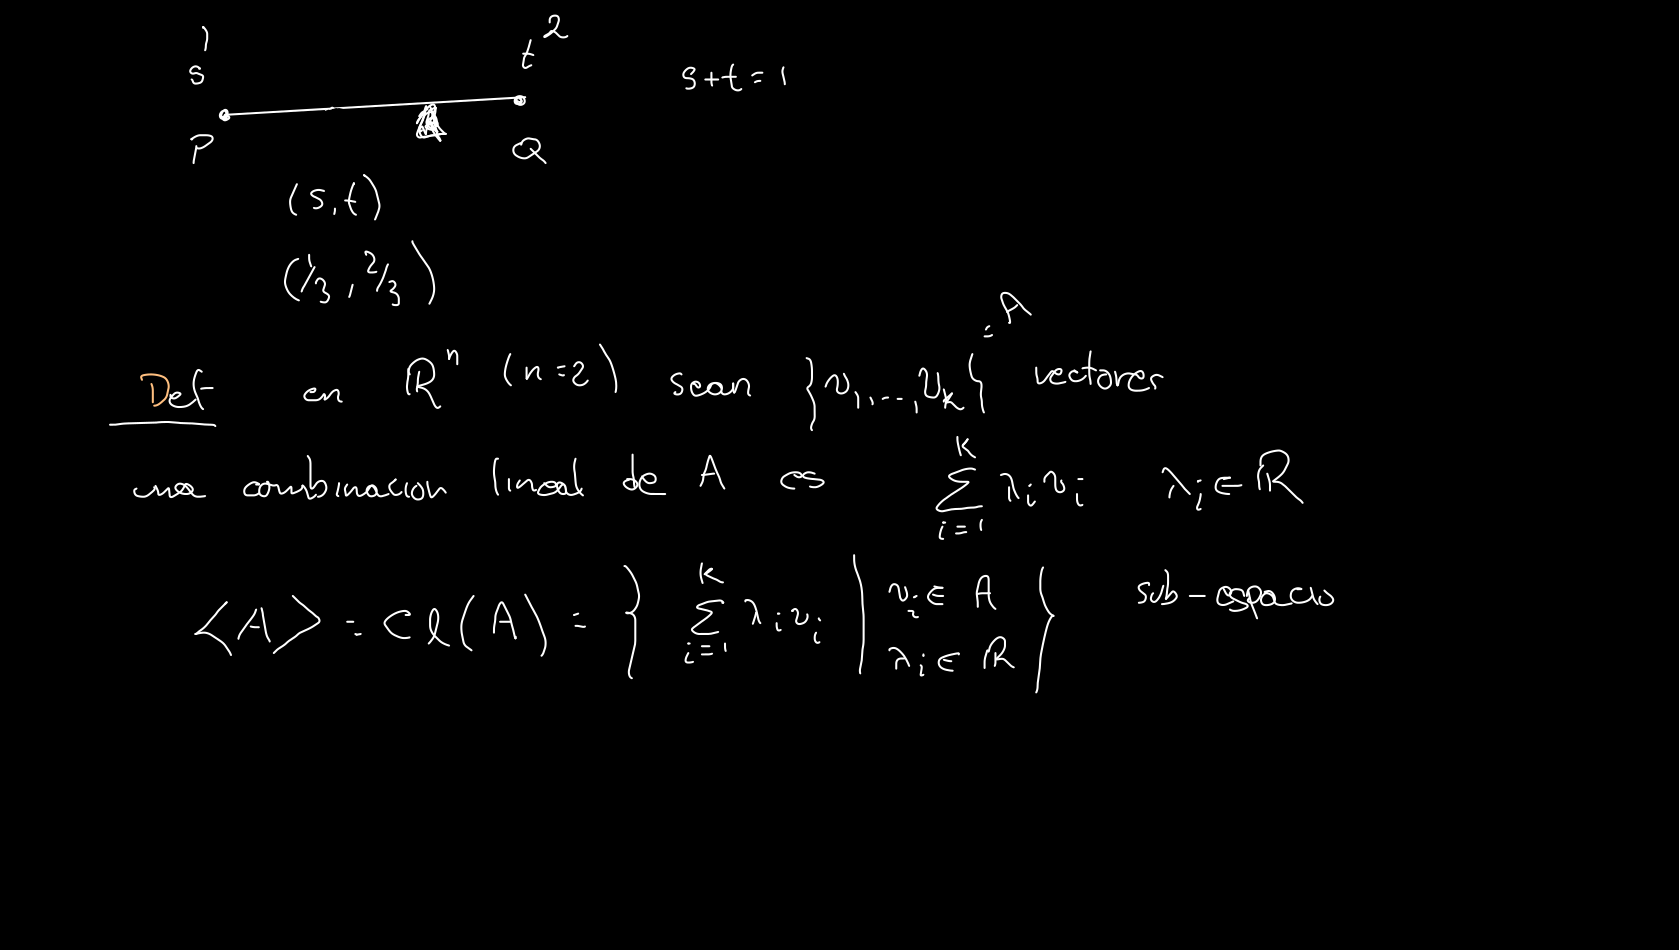 1 t²
s s+t=1
P Q
(s,t)
(1/3, 2/3)
Def en ℝⁿ (n=2) sean {v₁,...,vₖ} = A vectores
una combinacion lineal de A es ∑_{i=1}^{K} λᵢvᵢ λᵢ∈ℝ
<A> = cl(A) = { ∑_{i=1}^{K} λᵢvᵢ | vᵢ∈A λᵢ∈ℝ } sub-espacio